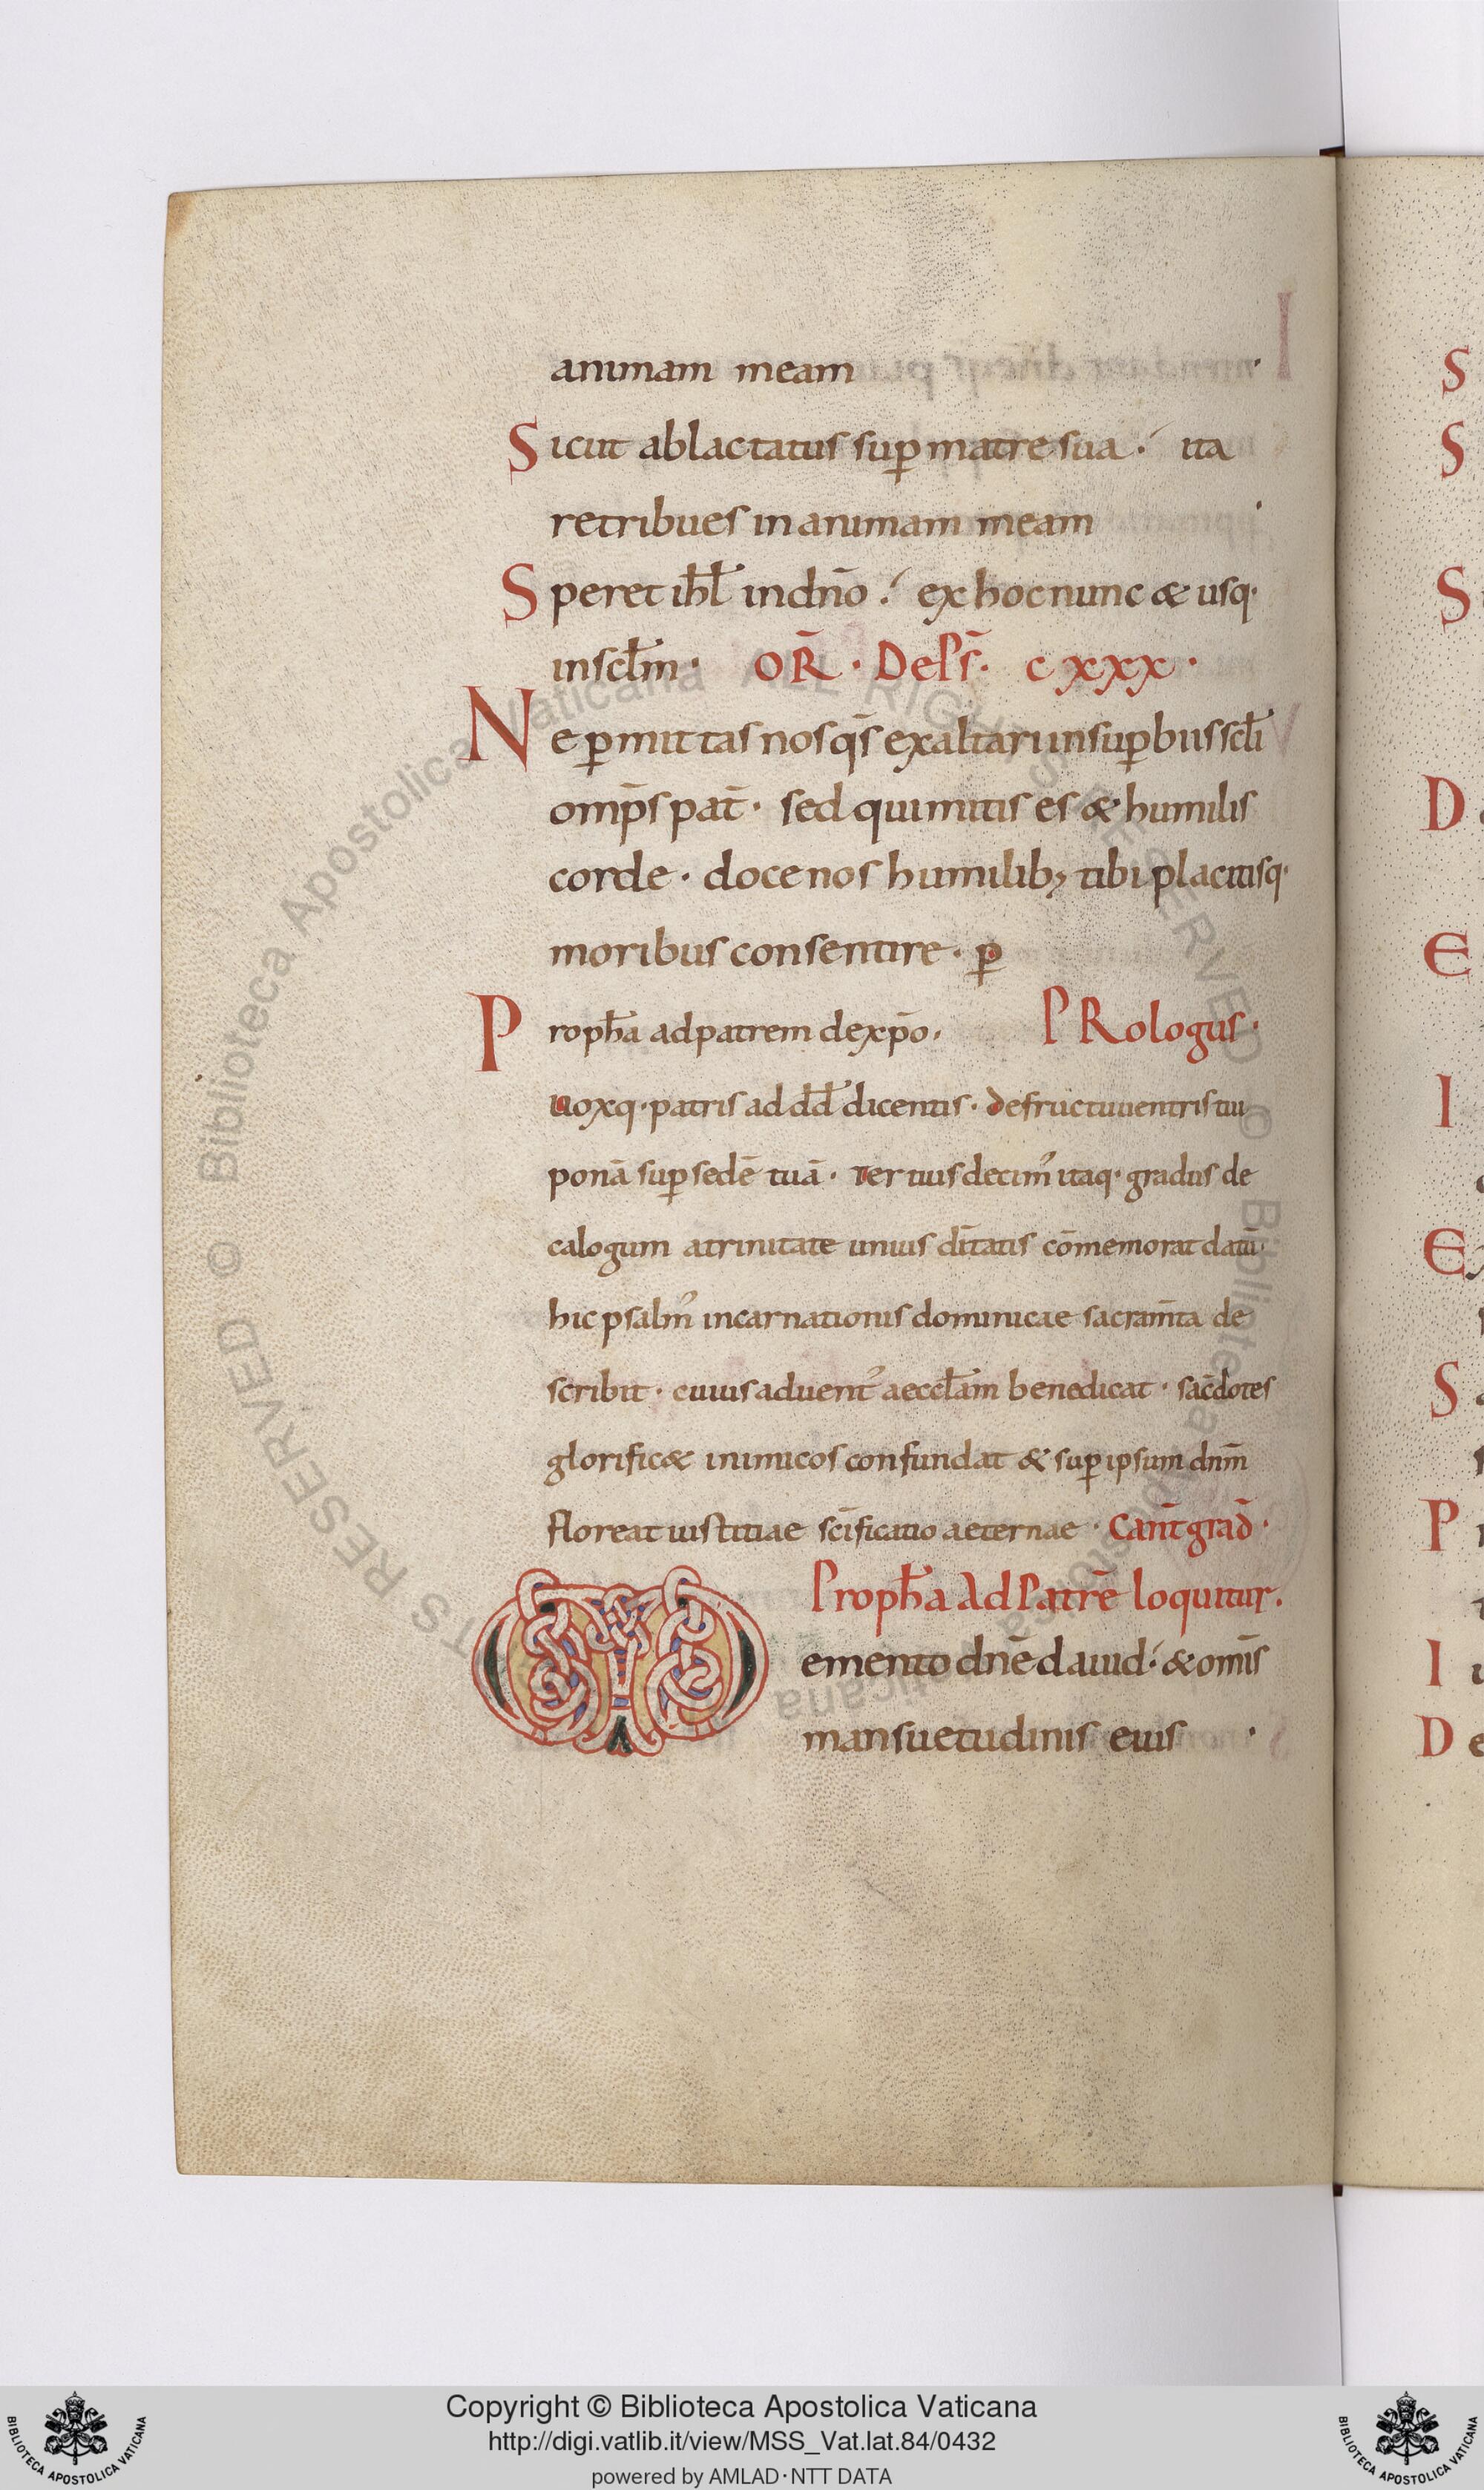 animam meam
Sicut ablactatus sup̱ matre sua ·́ ita
retribues in animam meam
Speret ihl̄ in dn̄o ·́ ex hoc nunc & usq·
in scl̄m · OR̄ · De Ps̄ · cxxx ·
Ne p̱mittas nos qs̄ exaltari in sup̱bus scl̄i
omp̄s pat̄ · sed qui mitis es & humilis
corde · doce nos humilib; tibi placitisq·
moribus consentire · p̱
Proph̄a ad patrem de xp̄o · PRologus ·
uoxq · patris ad dd̄ dicentis · de fructu uentris tui
ponā sup̱ sedē tuā · Tertius decim᾽ itaq· gradus de
calogum a trinitate unius dīt̄atis cōmemorat datū ·
hic psalm᾽ incarnationis dominicae sacram̄ta de
scribit · cuius aduent᾽ aeccl̄am benedicat · sac̄dotes
glorific& inimicos confundat & sup̱ ipsum dn̄m
floreat iustitiae scīficatio aeternae · Cant̄ grad̄ ·
Proph̄a Ad Patrē loquitur ·
Memento dn̄e dauid ·́ & om̄is
mansuetudinis eius ·
S
S
S
D
E
I
E
S
P
I
D
Copyright © Biblioteca Apostolica Vaticana
http://digi.vatlib.it/view/MSS_Vat.lat.84/0432
powered by AMLAD·NTT DATA
BIBLIOTECA APOSTOLICA VATICANA
BIBLIOTECA APOSTOLICA VATICANA